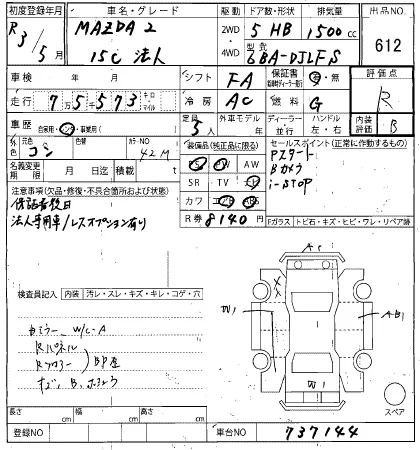 初度登録年月 車名・グレード 駆動 ドア数・形状 排気量 出品NO.
R3/5月 MAZDA 2 2WD 5 HB 1500 cc 612
15C 法人 4WD 型式 6BA-DJLFS
車検 年 月 シフト FA 保証書 有・無 評価点
走行 7万5千573 キロ・マイル 冷房 AC 燃料 G R
車歴 自家用・レンタ・事業用( ) 定員 5人 外車モデル 年 ディーラー 並行 ハンドル 左・右 内装評価 B
外色 元色 コン 色替 カラーNO 42M 装備品(純正品に限る) セールスポイント(正常に作動するもの)
名義変更期限 月 日 積載 t PS PW AW Pスタート
SR TV ナビ Bカメラ
注意事項(欠品・修復・不具合箇所および状態) カワ エアB ABS i-STOP
保証書後日 R券 8140 円
法人専用車/レスオプション有り Fガラス トビ石・キズ・ヒビ・ワレ・リペア跡
検査員記入 内装 汚レ・スレ・キズ・キレ・コゲ・穴
AC
W1 A B1
W1
W/C-A
Rパネル
Rフロアー
スペア
長さ cm 幅 cm 高さ cm
登録NO 車台NO 737144